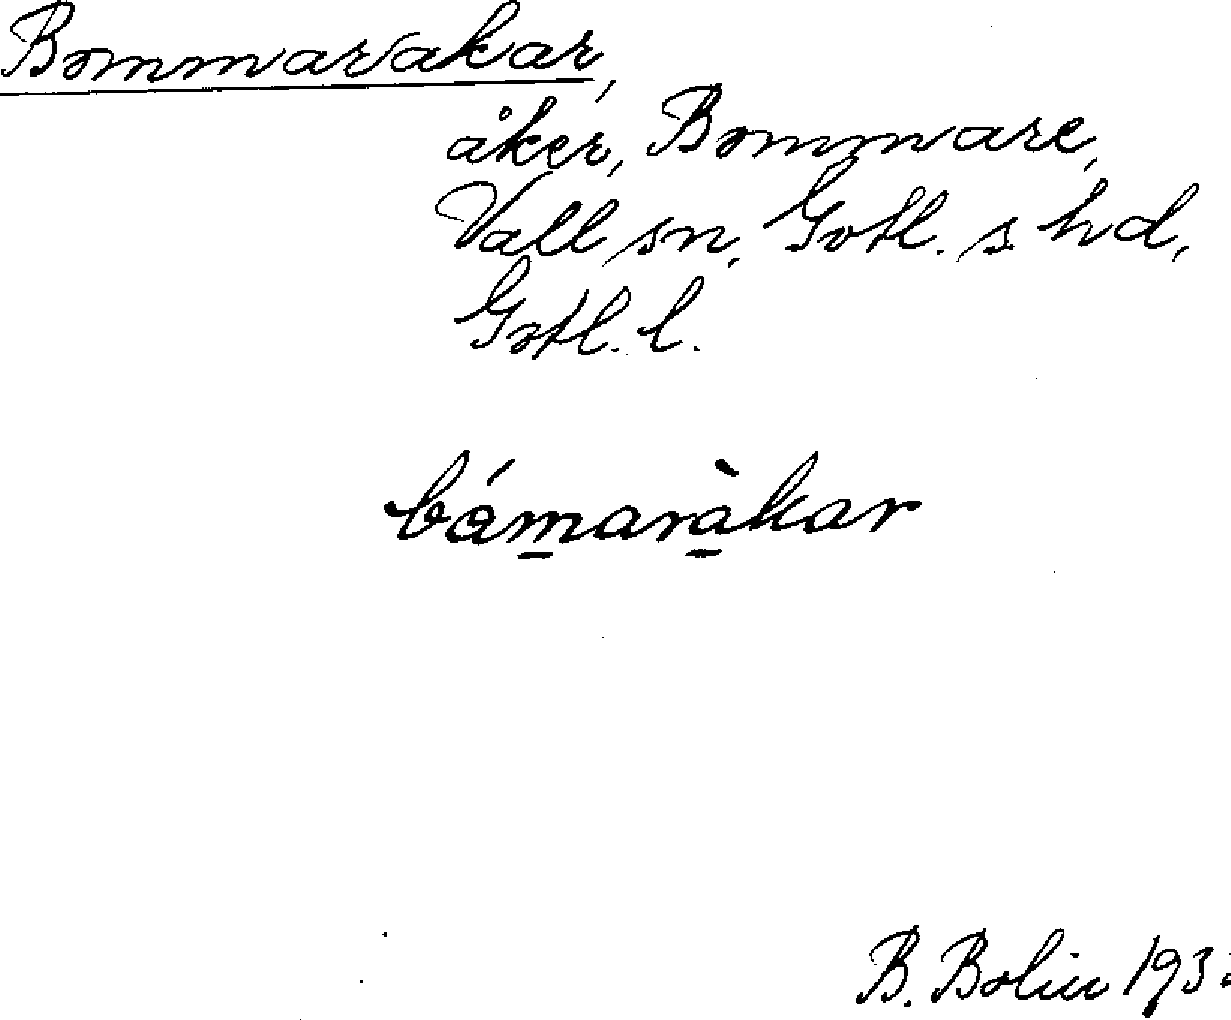 Bommarakar,
åker, Bommare,
Vall sn, Gotl. s hd,
Gotl. l.
bámaràkar
B. Bolin